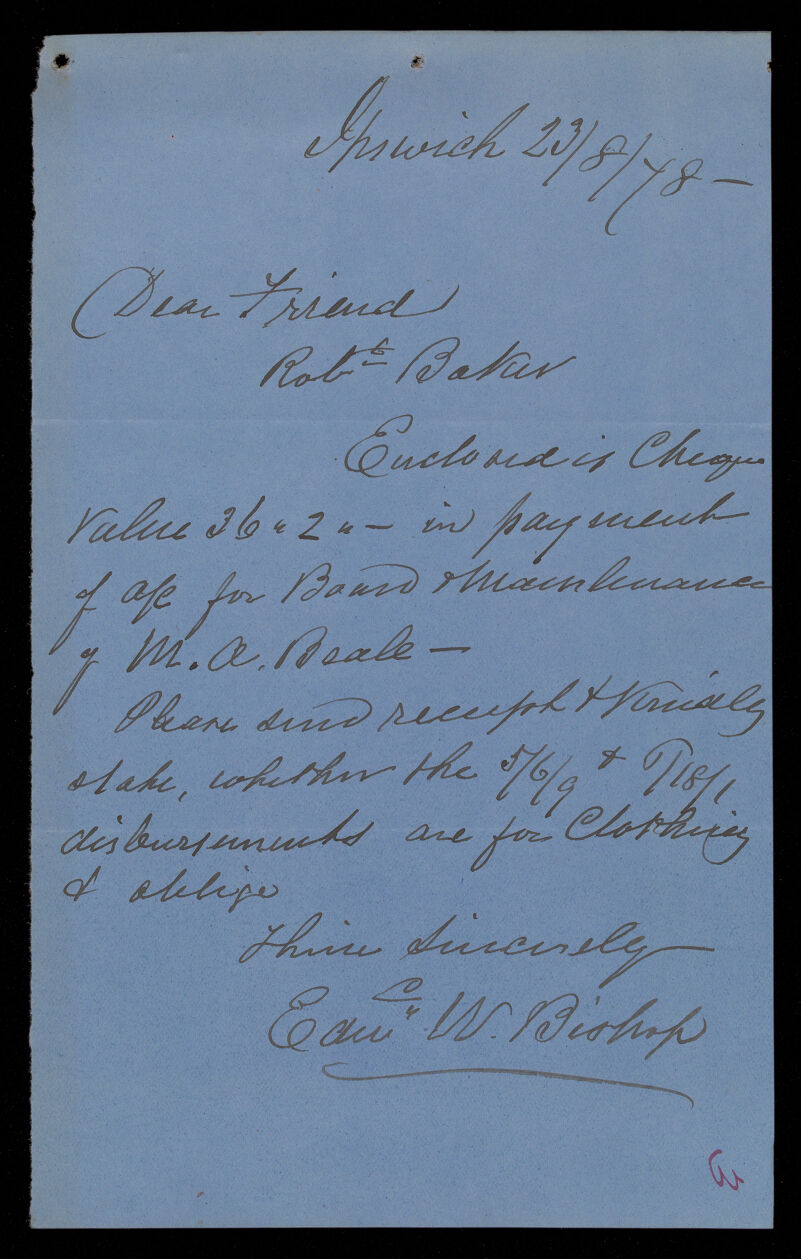 Ipswich 23/8/78 –
Dear Friend
Robt Baker
Enclosed is Cheque
value 36 " 2 " – in payment
of a/c for Board & Maintenance
of M. A. Beale –
Please send receipt & kindly
state, whether the 5/6/9 & 7/18/1
disbursements are for Clothing
& oblige
Thine Sincerely
Edwd W. Bishop